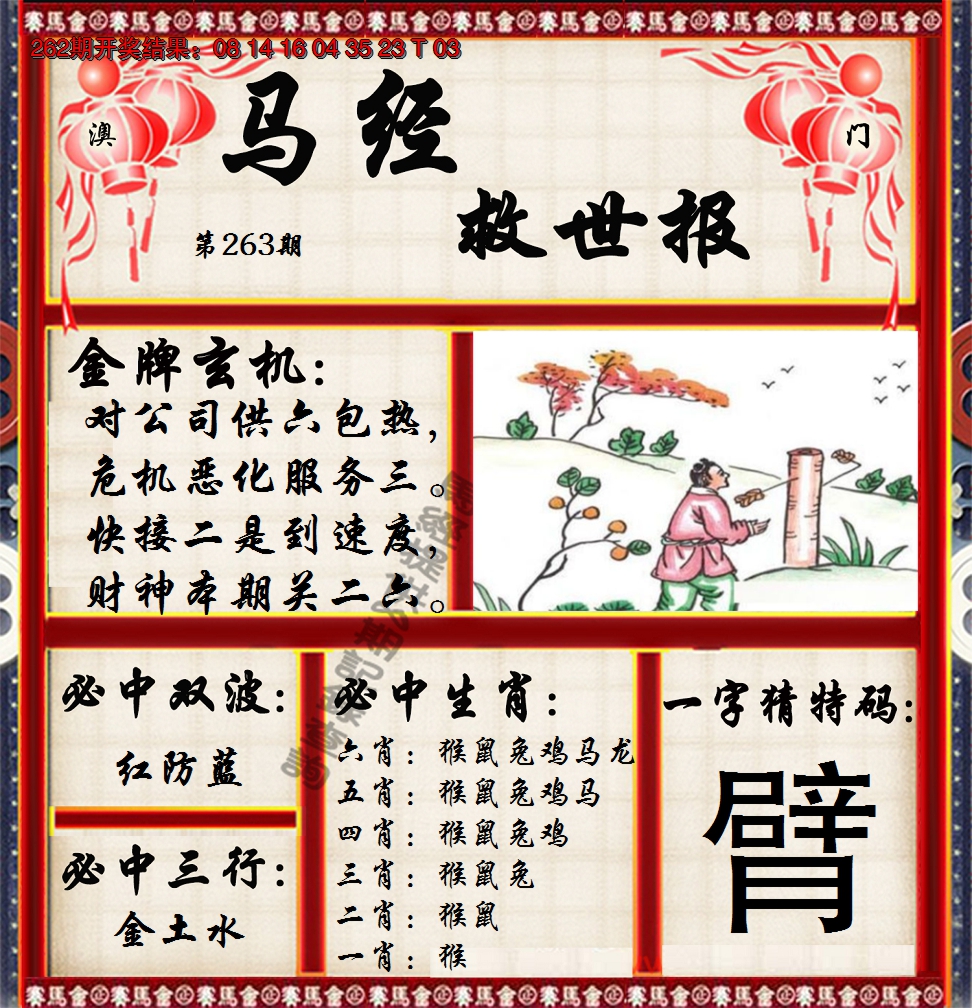 赛馬会赛馬会赛馬会赛馬会赛馬会赛馬会赛馬会赛馬会
262期开奖结果：08 14 16 04 35 23 T 03
澳 门
马经
救世报
第263期
金牌玄机：
对公司供六包热，
危机恶化服务三。
快接二是到速度，
财神本期关二六。
必中双波：
红防蓝
必中三行：
金土水
必中生肖：
六肖：猴鼠兔鸡马龙
五肖：猴鼠兔鸡马
四肖：猴鼠兔鸡
三肖：猴鼠兔
二肖：猴鼠
一肖：猴
一字猜特码：
臂